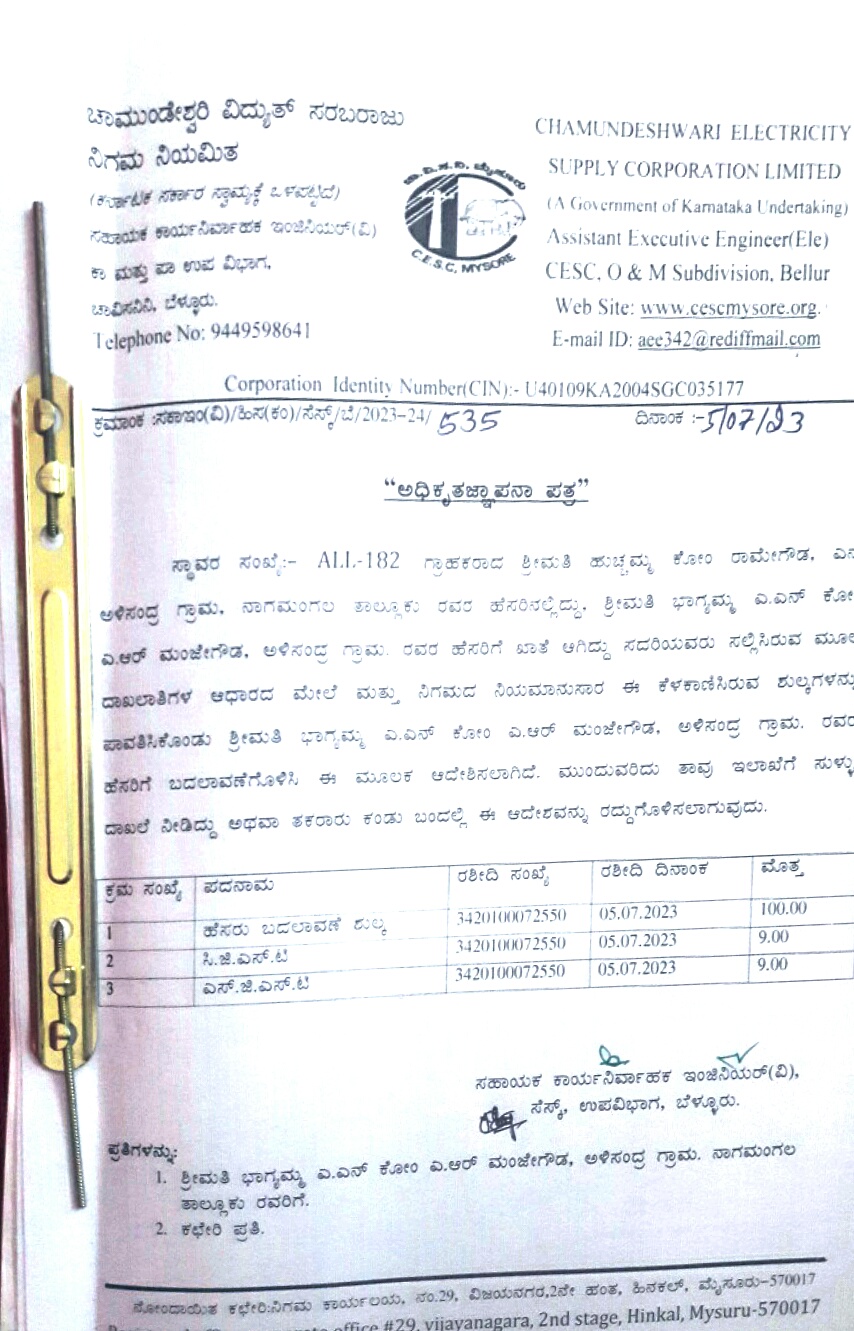 ಚಾಮುಂಡೇಶ್ವರಿ ವಿದ್ಯುತ್ ಸರಬರಾಜು
ನಿಗಮ ನಿಯಮಿತ
(ಕರ್ನಾಟಕ ಸರ್ಕಾರ ಸ್ವಾಮ್ಯಕ್ಕೆ ಒಳಪಟ್ಟಿದೆ)
ಸಹಾಯಕ ಕಾರ್ಯನಿರ್ವಾಹಕ ಇಂಜಿನಿಯರ್(ವಿ)
ಕಾ ಮತ್ತು ಪಾ ಉಪ ವಿಭಾಗ,
ಚಾವಿಸನಿನಿ, ಬೆಳ್ಳೂರು.
Telephone No: 9449598641
ಚಾ.ವಿ.ಸ.ನಿ. ಮೈಸೂರು
C.E.S.C, MYSORE
CHAMUNDESHWARI ELECTRICITY
SUPPLY CORPORATION LIMITED
(A Government of Karnataka Undertaking)
Assistant Executive Engineer(Ele)
CESC, O & M Subdivision, Bellur
Web Site: www.cescmysore.org.
E-mail ID: aee342@rediffmail.com
Corporation Identity Number(CIN):- U40109KA2004SGC035177
ಕ್ರಮಾಂಕ :ಸಕಾಇಂ(ವಿ)/ಹಿಸ(ಕಂ)/ಸೆಸ್ಕ್/ಬೆ/2023-24/ 535 ದಿನಾಂಕ :-5/07/23
“ಅಧಿಕೃತಜ್ಞಾಪನಾ ಪತ್ರ”
ಸ್ಥಾವರ ಸಂಖ್ಯೆ:- ALL-182 ಗ್ರಾಹಕರಾದ ಶ್ರೀಮತಿ ಹುಚ್ಚಮ್ಮ ಕೋಂ ರಾಮೇಗೌಡ,
ಅಳಿಸಂದ್ರ ಗ್ರಾಮ, ನಾಗಮಂಗಲ ತಾಲ್ಲೂಕು ರವರ ಹೆಸರಿನಲ್ಲಿದ್ದು, ಶ್ರೀಮತಿ ಭಾಗ್ಯಮ್ಮ ಎ.ಎನ್ ಕೋಂ
ಎ.ಆರ್ ಮಂಜೇಗೌಡ, ಅಳಿಸಂದ್ರ ಗ್ರಾಮ. ರವರ ಹೆಸರಿಗೆ ಖಾತೆ ಆಗಿದ್ದು ಸದರಿಯವರು ಸಲ್ಲಿಸಿರುವ ಮೂಲ
ದಾಖಲಾತಿಗಳ ಆಧಾರದ ಮೇಲೆ ಮತ್ತು ನಿಗಮದ ನಿಯಮಾನುಸಾರ ಈ ಕೆಳಕಾಣಿಸಿರುವ ಶುಲ್ಕಗಳನ್ನು
ಪಾವತಿಸಿಕೊಂಡು ಶ್ರೀಮತಿ ಭಾಗ್ಯಮ್ಮ ಎ.ಎನ್ ಕೋಂ ಎ.ಆರ್ ಮಂಜೇಗೌಡ, ಅಳಿಸಂದ್ರ ಗ್ರಾಮ. ರವರ
ಹೆಸರಿಗೆ ಬದಲಾವಣೆಗೊಳಿಸಿ ಈ ಮೂಲಕ ಆದೇಶಿಸಲಾಗಿದೆ. ಮುಂದುವರಿದು ತಾವು ಇಲಾಖೆಗೆ ಸುಳ್ಳು
ದಾಖಲೆ ನೀಡಿದ್ದು ಅಥವಾ ತಕರಾರು ಕಂಡು ಬಂದಲ್ಲಿ ಈ ಆದೇಶವನ್ನು ರದ್ದುಗೊಳಿಸಲಾಗುವುದು.
ಕ್ರಮ ಸಂಖ್ಯೆ ಪದನಾಮ ರಶೀದಿ ಸಂಖ್ಯೆ ರಶೀದಿ ದಿನಾಂಕ ಮೊತ್ತ
1 ಹೆಸರು ಬದಲಾವಣೆ ಶುಲ್ಕ 3420100072550 05.07.2023 100.00
2 ಸಿ.ಜಿ.ಎಸ್.ಟಿ 3420100072550 05.07.2023 9.00
3 ಎಸ್.ಜಿ.ಎಸ್.ಟಿ 3420100072550 05.07.2023 9.00
ಸಹಾಯಕ ಕಾರ್ಯನಿರ್ವಾಹಕ ಇಂಜಿನಿಯರ್(ವಿ),
ಸೆಸ್ಕ್, ಉಪವಿಭಾಗ, ಬೆಳ್ಳೂರು.
ಪ್ರತಿಗಳನ್ನು:
1. ಶ್ರೀಮತಿ ಭಾಗ್ಯಮ್ಮ ಎ.ಎನ್ ಕೋಂ ಎ.ಆರ್ ಮಂಜೇಗೌಡ, ಅಳಿಸಂದ್ರ ಗ್ರಾಮ. ನಾಗಮಂಗಲ
ತಾಲ್ಲೂಕು ರವರಿಗೆ.
2. ಕಛೇರಿ ಪ್ರತಿ.
ನೋಂದಾಯಿತ ಕಛೇರಿ:ನಿಗಮ ಕಾರ್ಯಲಯ, ನಂ.29, ವಿಜಯನಗರ,2ನೇ ಹಂತ, ಹಿನಕಲ್, ಮೈಸೂರು-570017
office #29, vijayanagara, 2nd stage, Hinkal, Mysuru-570017